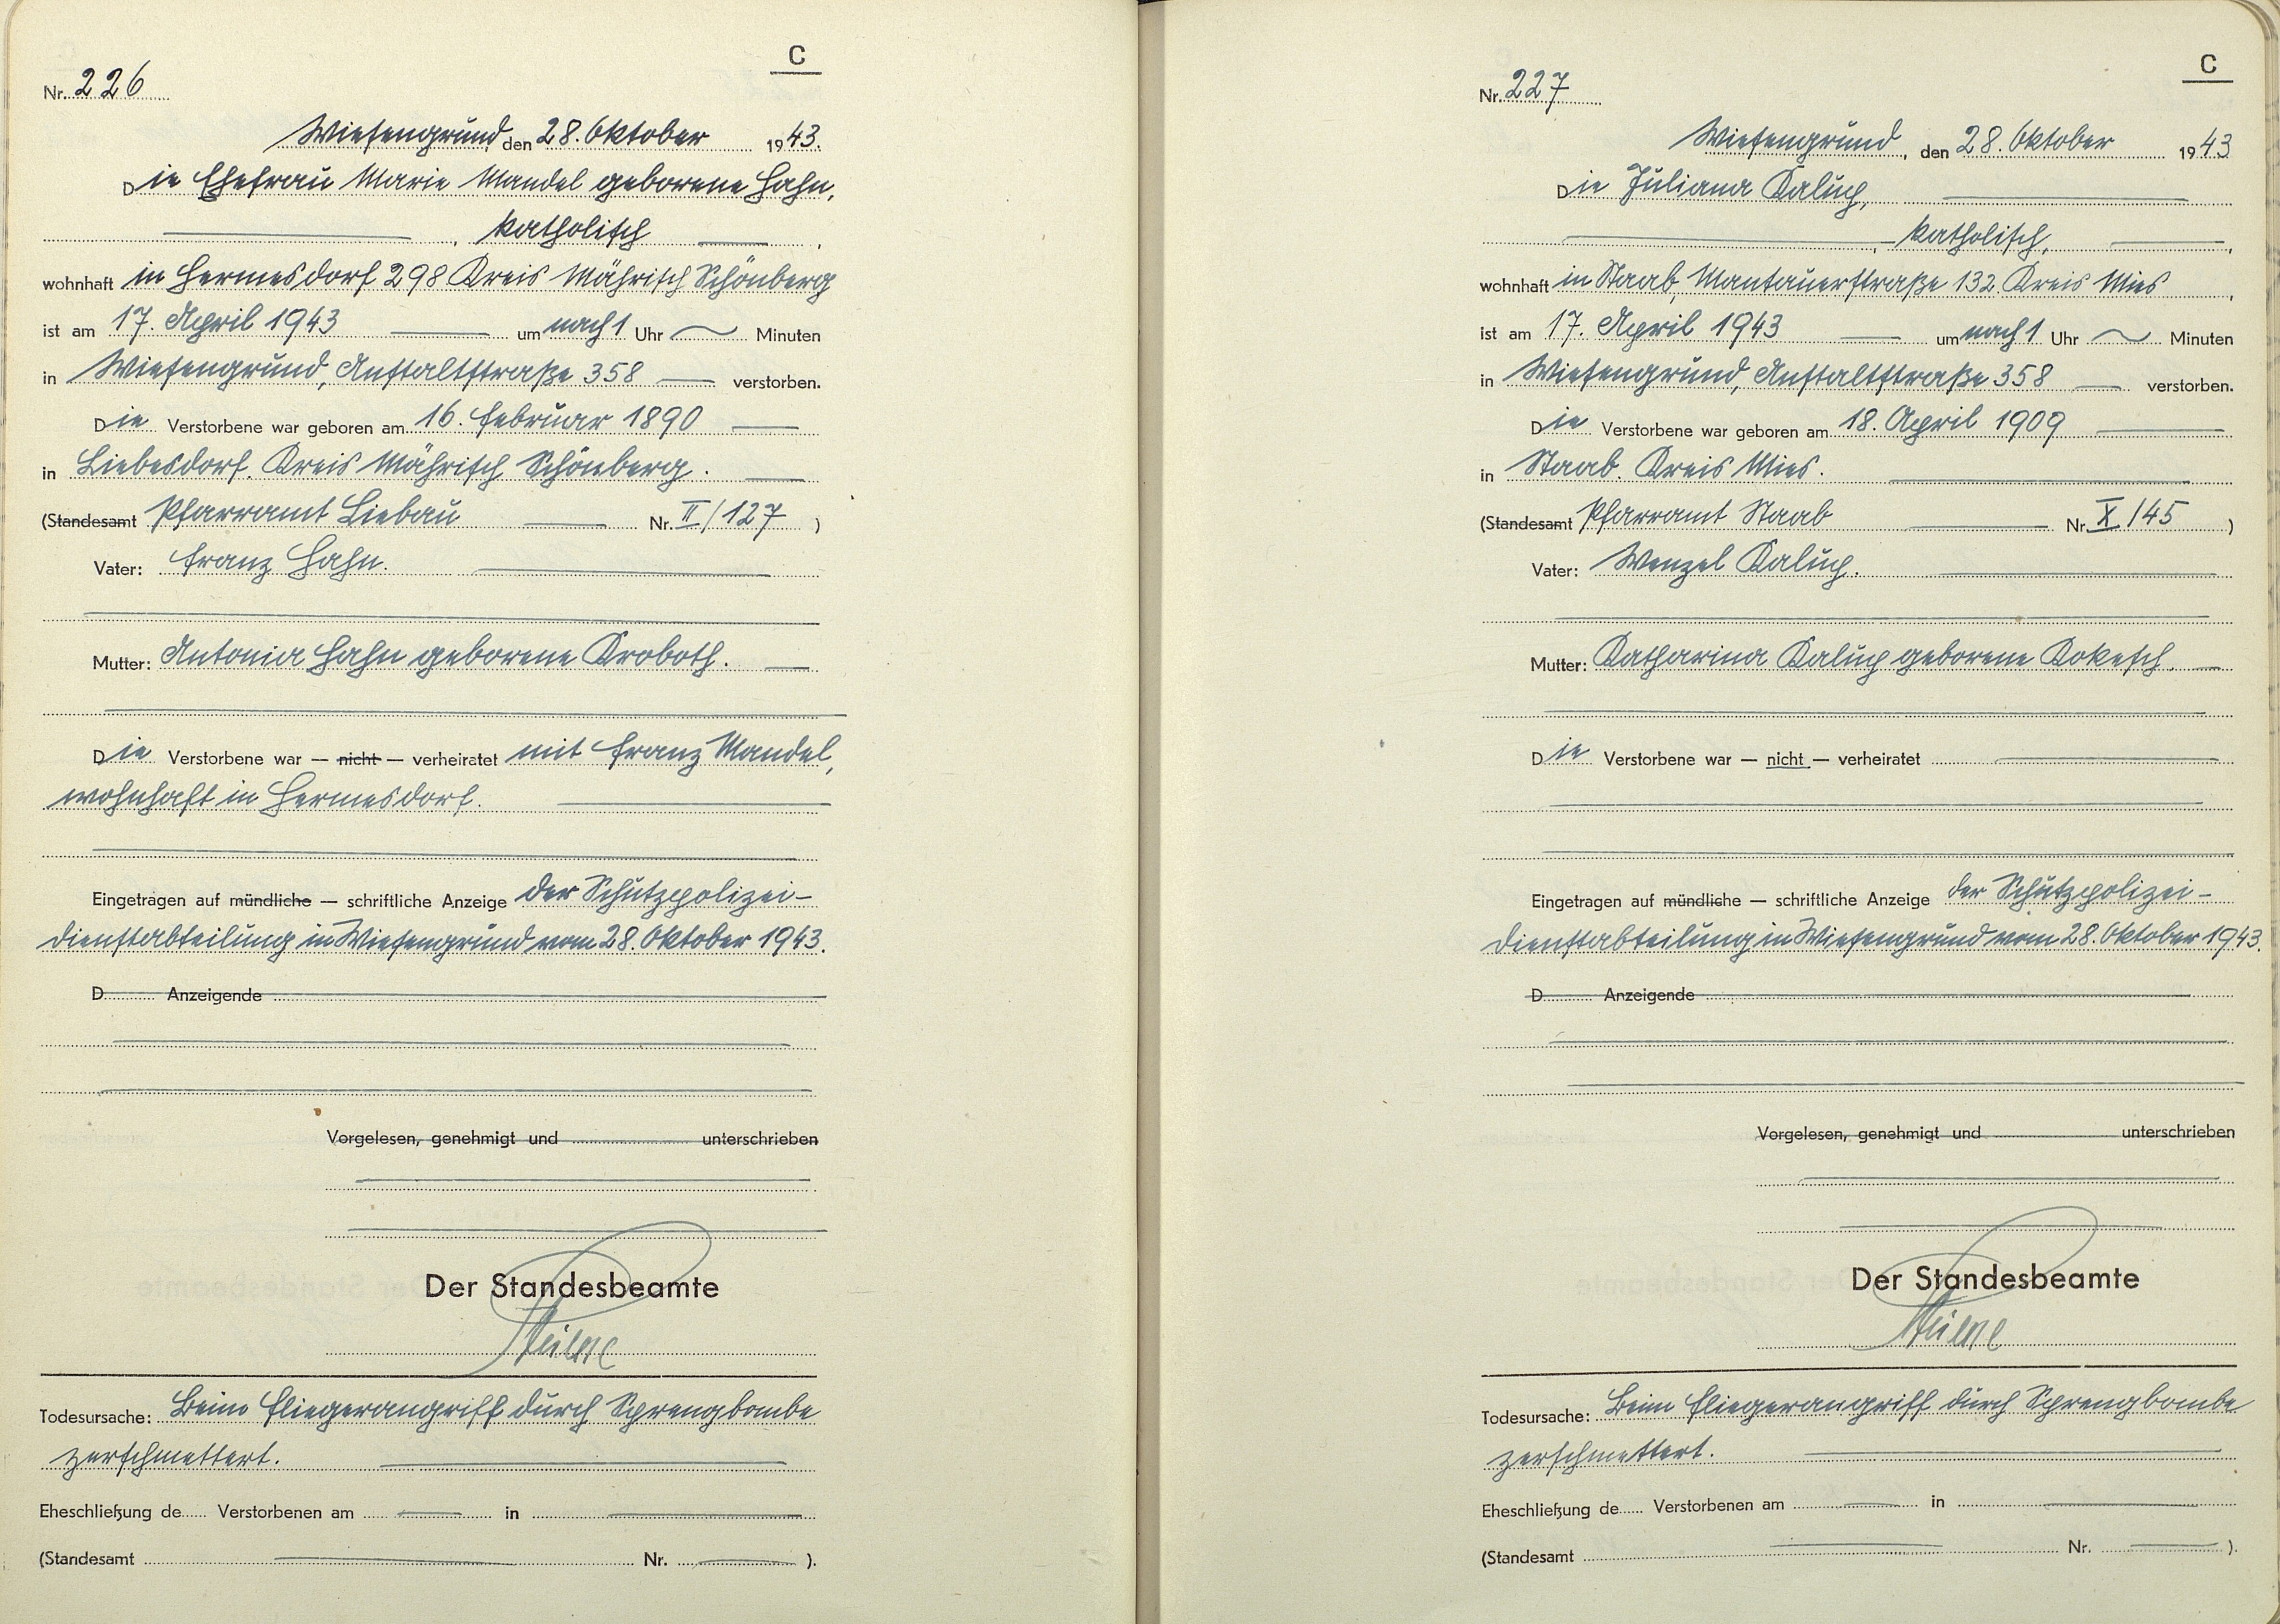 C
Nr. 226
Wiesengrund, den 28. Oktober 1943.
Die Ehefrau Marie Mandel geborene Hahn,
, katholisch ,
wohnhaft in Hermesdorf 298 Kreis Mährisch Schönberg
ist am 17. April 1943 um nach 1 Uhr Minuten
in Wiesengrund, Anstaltstraße 358 verstorben.
Die Verstorbene war geboren am 16. Februar 1890
in Liebesdorf. Kreis Mährisch Schönberg.
(Standesamt Pfarramt Liebau Nr. II/127 )
Vater: Franz Hahn.
Mutter: Antonia Hahn geborene Kroboth.
Die Verstorbene war — nicht — verheiratet mit Franz Mandel,
wohnhaft in Hermesdorf.
Eingetragen auf mündliche — schriftliche Anzeige der Schutzpolizei-
dienstabteilung in Wiesengrund vom 28. Oktober 1943.
D Anzeigende
Vorgelesen, genehmigt und unterschrieben
Der Standesbeamte
Todesursache: Beim Fliegerangriff durch Sprengbombe
zerschmettert.
Eheschließung de Verstorbenen am in
(Standesamt Nr. ).
C
Nr. 227
Wiesengrund, den 28. Oktober 1943
Die Juliana Kalup,
, katholisch, ,
wohnhaft in Staab, Mantauerstraße 132. Kreis Mies ,
ist am 17. April 1943 um nach 1 Uhr Minuten
in Wiesengrund, Anstaltstraße 358 verstorben.
Die Verstorbene war geboren am 18. April 1909
in Staab. Kreis Mies.
(Standesamt Pfarramt Staab Nr. X/45 )
Vater: Wenzel Kalup.
Mutter: Katharina Kalup geborene Kokesch.
Die Verstorbene war — nicht — verheiratet
Eingetragen auf mündliche — schriftliche Anzeige der Schutzpolizei-
dienstabteilung in Wiesengrund vom 28. Oktober 1943.
D Anzeigende
Vorgelesen, genehmigt und unterschrieben
Der Standesbeamte
Todesursache: Beim Fliegerangriff durch Sprengbombe
zerschmettert.
Eheschließung de Verstorbenen am in
(Standesamt Nr. ).